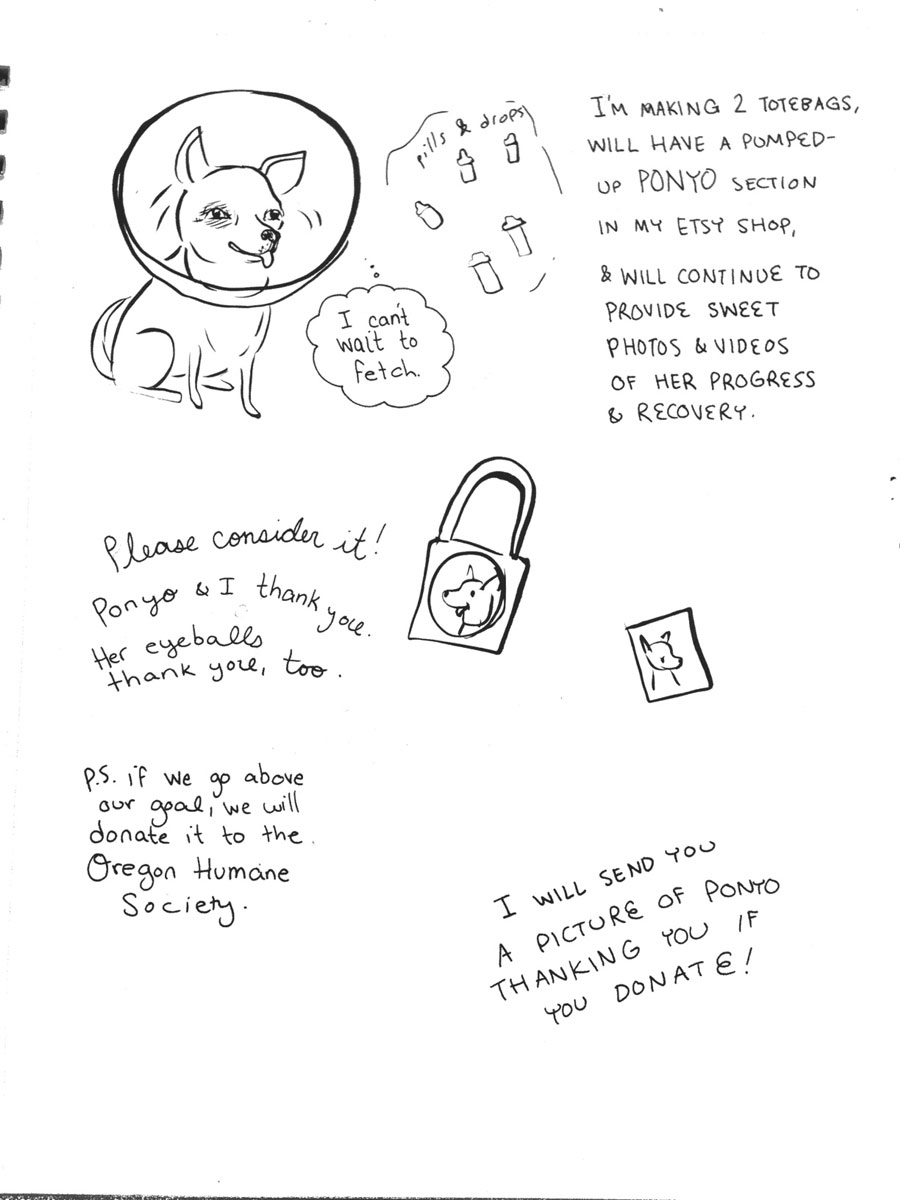 pills & drops
I'M MAKING 2 TOTEBAGS,
WILL HAVE A PUMPED-
UP PONYO SECTION
IN MY ETSY SHOP,
& WILL CONTINUE TO
PROVIDE SWEET
PHOTOS & VIDEOS
OF HER PROGRESS
& RECOVERY.
I can't
wait to
fetch.
Please consider it!
Ponyo & I thank you.
Her eyeballs
thank you, too.
P.S. if we go above
our goal, we will
donate it to the
Oregon Humane
Society.
I WILL SEND YOU
A PICTURE OF PONYO
THANKING YOU IF
YOU DONATE!